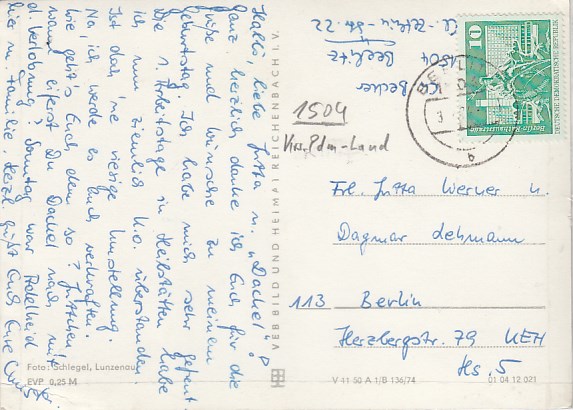 Hallo, liebe Jutta u. "Dackel"!
Ganz herzlich danke ich Euch für die
Grüße und Wünsche zu meinem
Geburtstag. Ich habe mich sehr gefreut.
Die 1. Arbeitstage in Heilstätten habe
ich nun ziemlich k.o. überstanden
Ist doch 'ne riesige Umstellung.
Na, ich werde es auch verkraften.
Wie geht's Euch denn so? Juttchen
wann eiferst Du Dackel nach mit
d. Verlobung? Sonntag war Adelheid
hier m. Familie. Herzl. grüßt Euch Eure
K. Becker
1504 Beelitz
Cl.-Zetkin-Str. 22
1504
Krs. Pdm-Land
10
DEUTSCHE DEMOKRATISCHE REPUBLIK
Berlin · Rathausstraße
b
VEB BILD UND HEIMAT REICHENBACH I. V.
Frl. Jutta Werner u.
Dagmar Lehmann
113 Berlin
Herzbergstr. 79 KEH
Hs. 5
Foto: Schlegel, Lunzenau
EVP 0,25 M
V 41 50 A 1/B 136/74
01 04 12 021